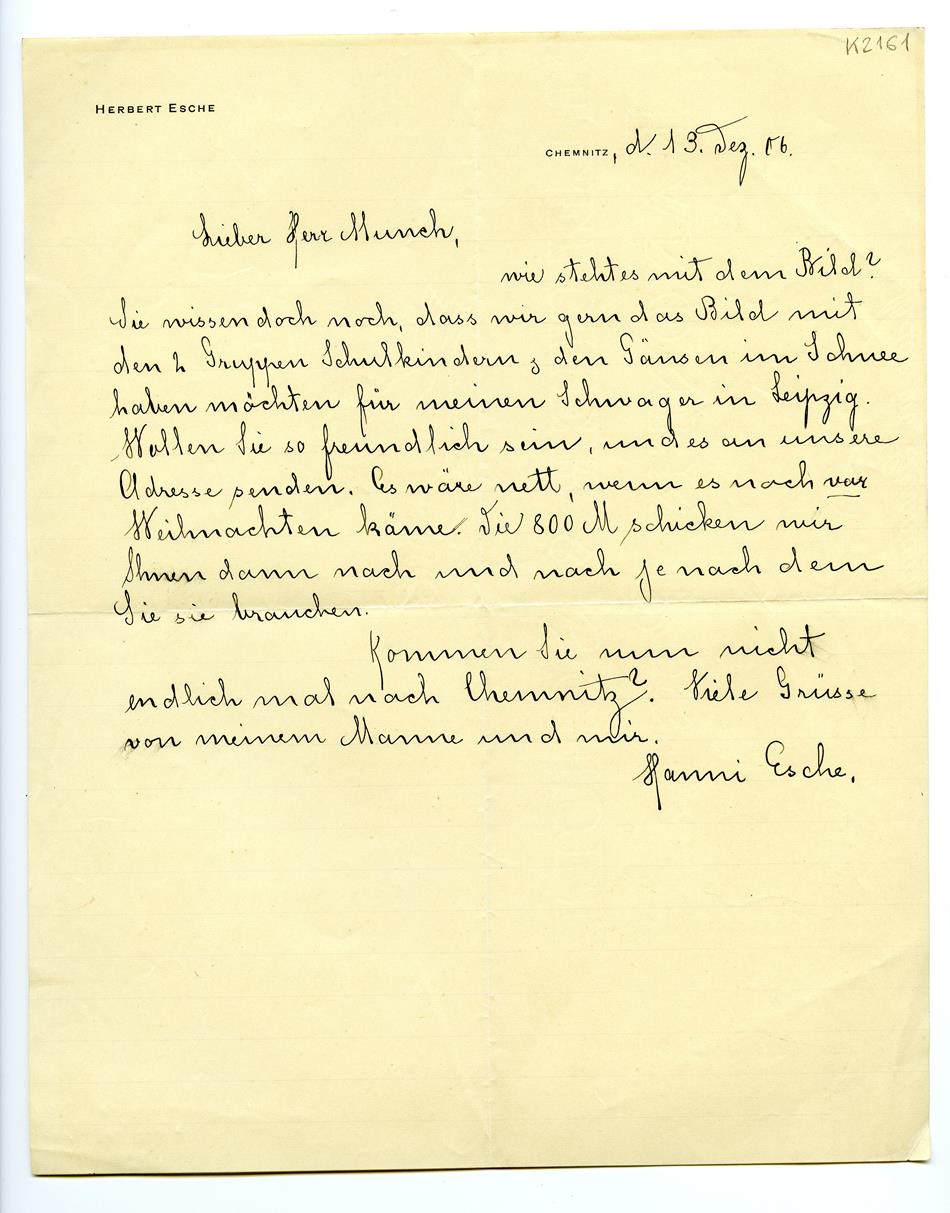 K2161
HERBERT ESCHE
CHEMNITZ, d. 13. Dez. 06.
Lieber Herr Munch,
wie steht es mit dem Bild?
Sie wissen doch noch, dass wir gern das Bild mit
den 2 Gruppen Schulkindern & den Gänsen im Schnee
haben möchten für meinen Schwager in Leipzig.
Wollen Sie so freundlich sein, und es an unsere
Adresse senden. Es wäre nett, wenn es noch vor
Weihnachten käme. Die 800 M schicken wir
Ihnen dann nach und nach je nach dem
Sie sie brauchen.
Kommen Sie nun nicht
endlich mal nach Chemnitz?. Viele Grüsse
von meinem Manne und mir.
Hanni Esche.